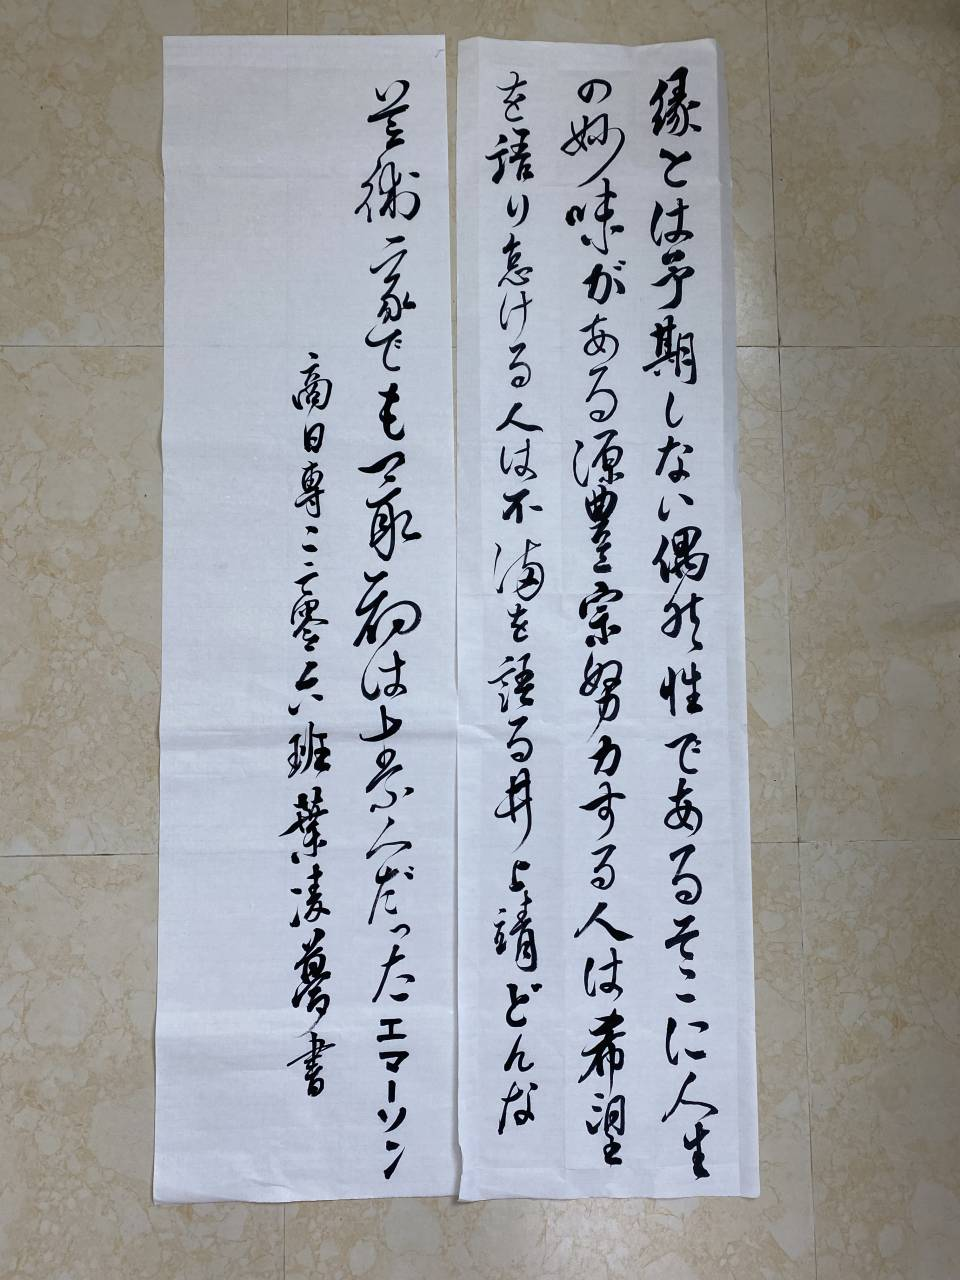 縁とは予期しない偶然性であるそこに人生
の妙味がある源豊宗努力する人は希望
を語り怠ける人は不満を語る井上靖どんな
芸術家でも最初は素人だったエマーソン
商日専二二零六班葉凌夢書